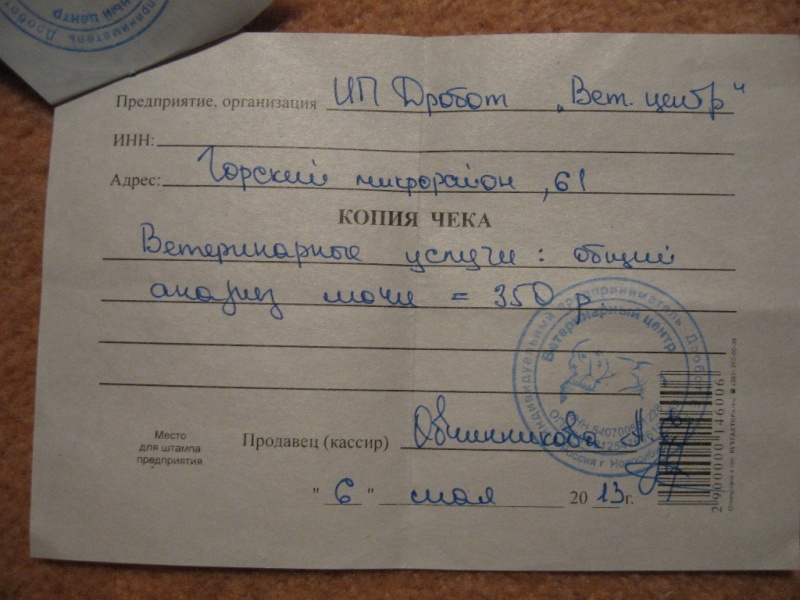 Предприятие, организация ИП Дробот „Вет. центр"
ИНН:
Адрес: Горский микрорайон, 61
КОПИЯ ЧЕКА
Ветеринарные услуги: общий
анализ мочи = 350 р
Индивидуальный предприниматель Дробот
Ветеринарный центр
Место
для штампа
предприятия
Продавец (кассир) Овчинникова
" 6 " мая 2013г.
2 900000 146006